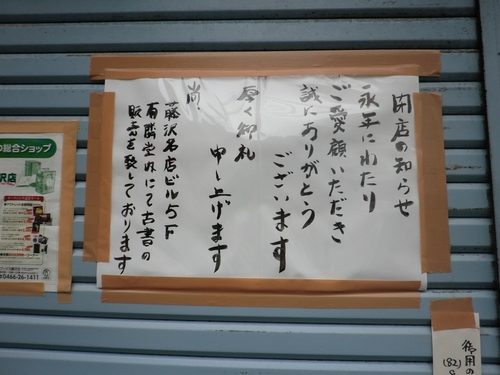 閉店の知らせ
永年にわたり
ご愛顧いただき
誠にありがとう
ございます
厚く御礼
申し上げます
尚
藤沢名店ビル5F
有隣堂内にて古書の
販売を致しております
総合ショップ
沢店
0466-26-1411
御用の
(82)